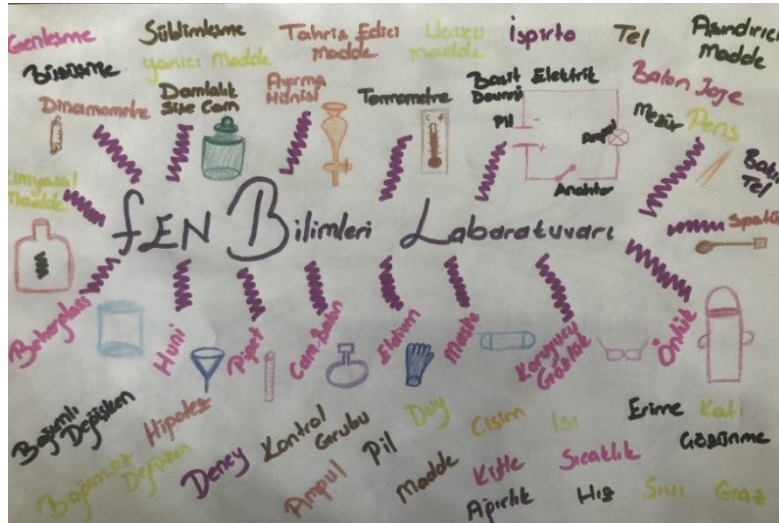 Genleşme
Süblimleşme
Tahriş Edici
Madde
Yanıcı Madde
İspirto
Tel
Aşındırıcı
Madde
Büzülme
Dinamometre
Damlalık
Şişe Cam
Ayırma
Hunisi
Termometre
Basit Elektrik
Devresi
Pil
Ampul
Anahtar
Balon Joje
Mezür
Pens
Bakır
Tel
Kimyasal
Madde
FEN Bilimleri Labaratuvarı
Spatül
Beherglass
Huni
Pipet
Cam Balon
Eldiven
Maske
Koruyucu
Gözlük
Önlük
Bağımlı
Değişken
Hipotez
Bağımsız
Değişken
Deney
Kontrol
Grubu
Ampul
Pil
Duy
Madde
Cisim
Isı
Erime
Katı
Çözünme
Kütle
Ağırlık
Sıcaklık
Hız
Sıvı
Graz